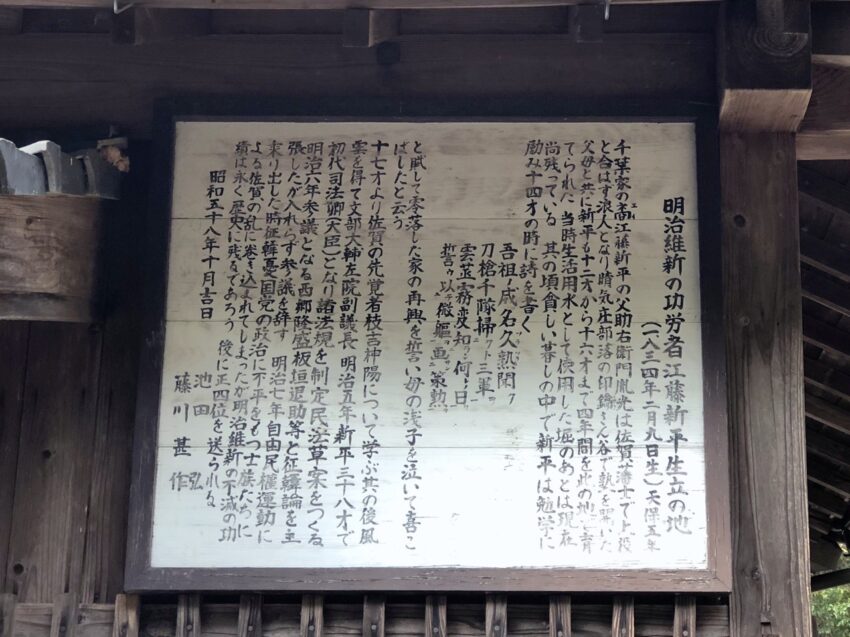 明治維新の功労者江藤新平生立の地
(一八三四年二月九日生)天保五年
千葉家の裔江藤新平の父助右衛門胤光は佐賀藩士で上役
と合はず浪人となり晴気庄部落の印鑰さん谷で塾を開いた
父母と共に新平も十二才から十六才まで四年間を此の地で育
てられた 当時生活用水として使用した堀のあとは現在
尚残っている 其の頃貧しい暮しの中で新平は勉学に
励み十四才の時に詩を書く
吾祖ノ成名久熱聞ク
刀槍千隊掃フト三軍ヲ
雲蒸霧変知ル何ノ日
誓ッテ以テ微軀ヲ画ニ策勲
と賦して零落した家の再興を誓い母の浅子を泣いて喜こ
ばしたと云う
十七才より佐賀の先覚者枝吉神陽について学ぶ其の後風
雲を得て文部大輔左院副議長 明治五年新平三十八才で
初代司法卿(大臣)となり諸法規を制定民法草案をつくる
明治六年参議となる西郷隆盛板垣退助等と征韓論を主
張したが入れらず参議を辞す 明治七年自由民権運動に
乗り出した時征韓憂国党の政治に不平をもつ士族たちに
よる佐賀の乱に巻き込まれてしまったが明治維新の不滅の功
績は永く歴史に残るであろう 後に正四位を送られる
昭和五十八年十月吉日
池田 弘
藤川甚作